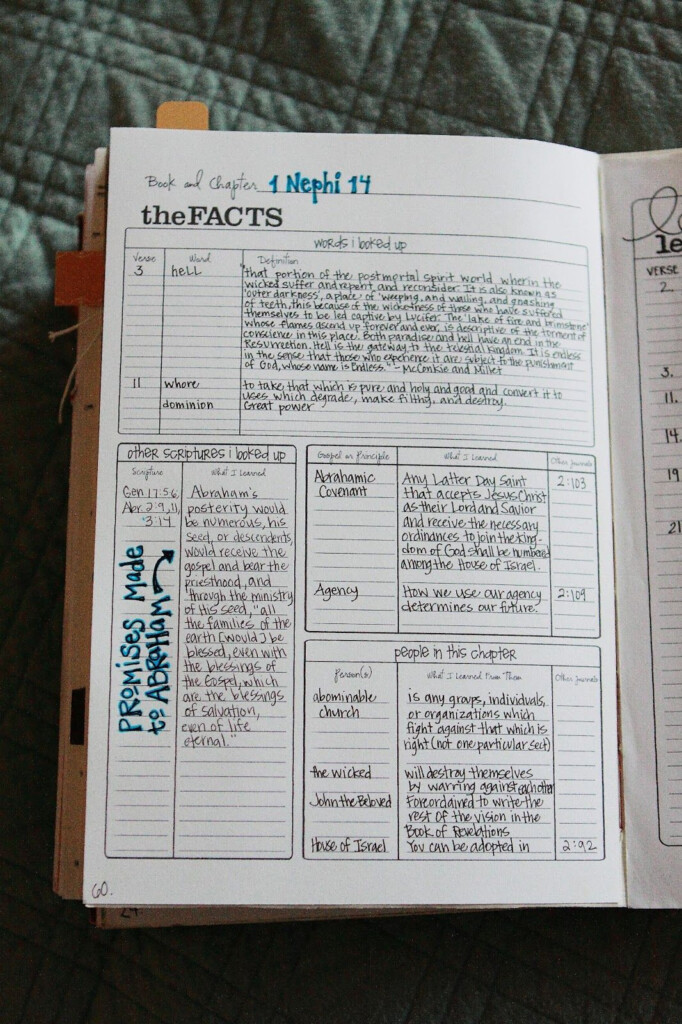 Book and Chapter 1 Nephi 14
the FACTS
words i looked up
Verse Word Definition
3 hell "that portion of the postmortal spirit world wherin the
wicked suffer and repent, and reconsider. It is also known as
'outer darkness', a place of 'weeping, and wailing, and gnashing
of teeth, this because of the wickedness of those who have suffered
themselves to be led captive by Lucifer. The 'lake of fire and brimstone'
whose flames ascend up forever and ever, is descriptive of the torment of
conscience in this place. Both paradise and hell have an end in the
Resurrection. Hell is the gateway to the telestial kingdom. It is endless
in the sense that those who experience it are subject to the punishment
of God, whose name is Endless." - McConkie and Millet
11 whore to take that which is pure and holy and good and convert it to
uses which degrade, make filthy, and destroy.
dominion Great power
other scriptures i looked up
Scripture What I Learned
Gen 17:5,6, Abraham's
Abr. 2:9,11, posterity would
3:14 be numerous, his
seed, or descendents,
would receive the
gospel and bear the
priesthood, and
"through the ministry
of His seed, "all
the families of the
earth [would] be
blessed, even with
the blessings of
the Gospel, which
are the blessings
of salvation,
even of life
eternal."
PROMISES MADE
to ABRAHAM
Gospel or Principle What I Learned Other Journals
Abrahamic Any Latter Day Saint 2:103
Covenant that accepts Jesus Christ
as their Lord and Savior
and receive the necessary
ordinances to join the king-
dom of God shall be numbered
among the House of Israel.
Agency How we use our agency 2:109
determines our future.
people in this chapter
Person(s) What I Learned From Them Other Journals
abominable is any groups, individuals,
church or organizations which
fight against that which is
right (not one particular sect)
the wicked will destroy themselves
by warring against each other
John the Beloved Foreordained to write the
rest of the vision in the
Book of Revelations
House of Israel You can be adopted in 2:92
60.
24.
le
VERSE
2
3.
11.
14.
19
21